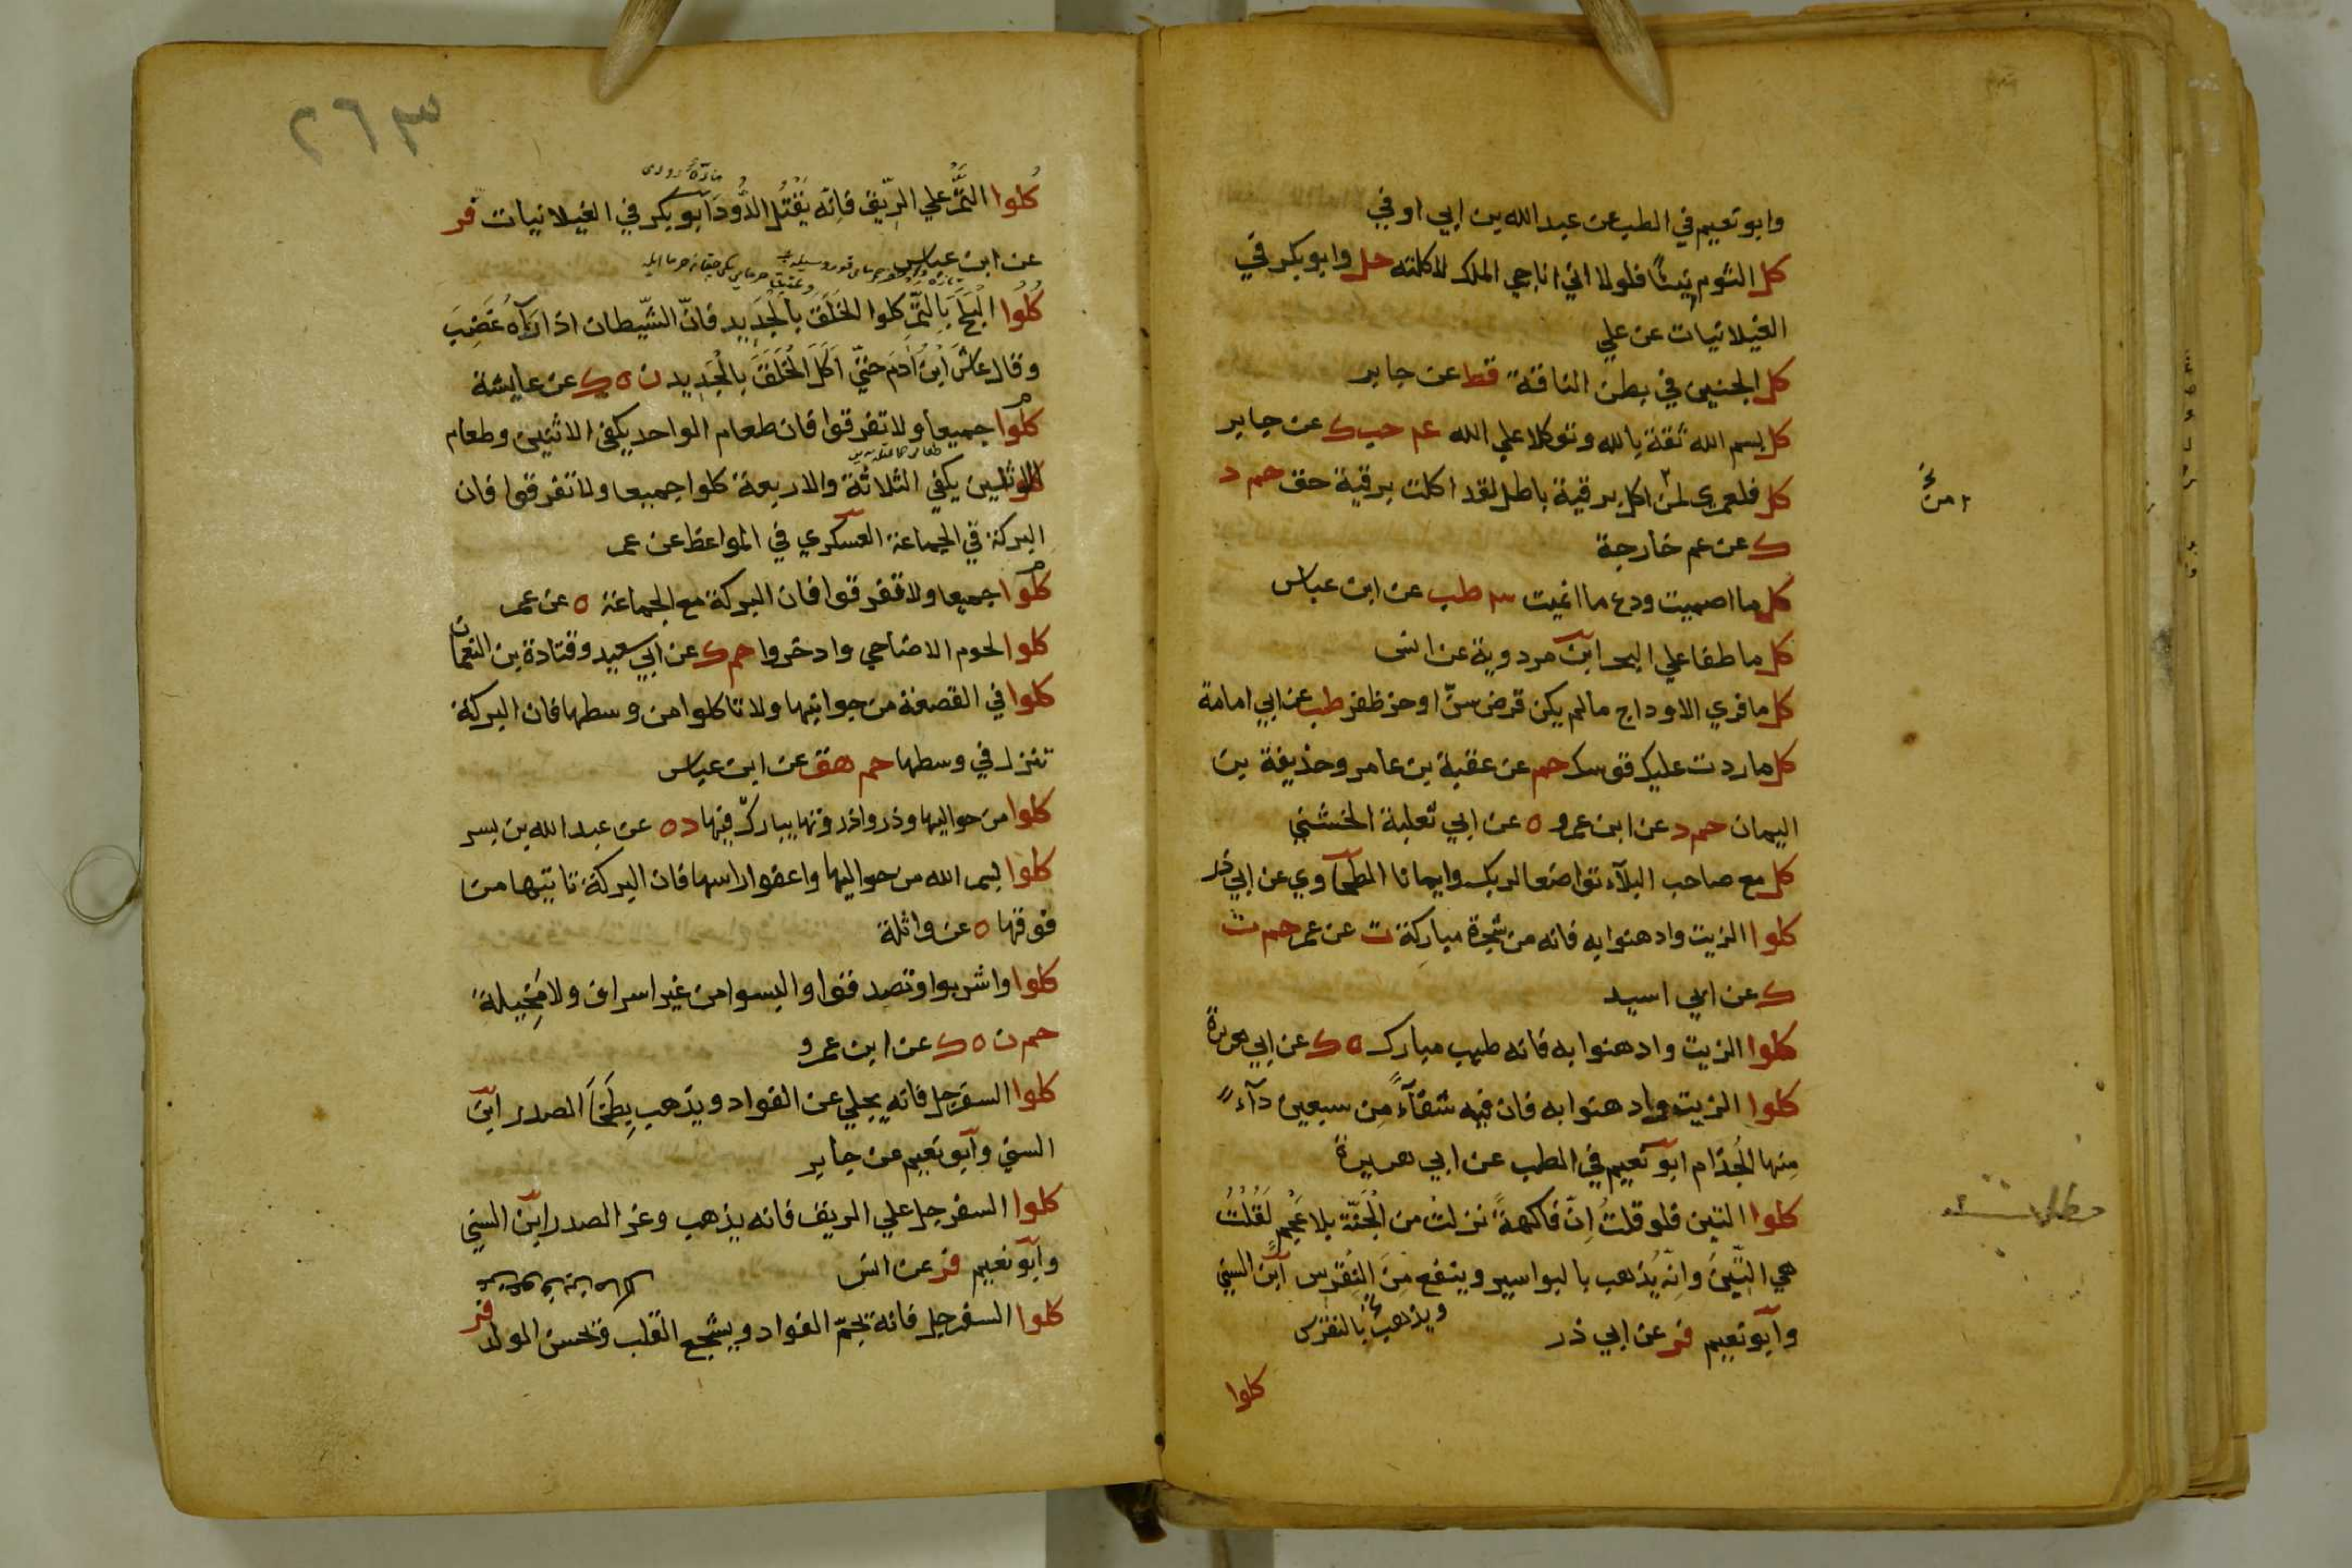 وابو نعيم في الطب عن عبد الله بن ابي اوفي
كل الثوم نيئًا فلولا اني اناجي الملك لاكلته حل وابو بكر في
الغيلانيات عن علي
كل الجنين في بطن الناقة قط عن جابر
كل بسم الله ثقة بالله وتوكلا علي الله عه حب ك عن جابر
كل فلعمري لمن اكل برقية باطل لقد اكلت برقية حق حم د
ك عن عم خارجة
كل ما اصميت ودع ما انميت طب عن ابن عباس
كل ما طفا علي البحر ابن مردوية عن انس
كل ما فري الاوداج ما لم يكن قرض سنّ او حز ظفر طب عن ابي امامة
كل ما ردت عليك قوسك حم عن عقبة بن عامر وحذيفة بن
اليمان حم د عن ابن عمرو ه عن ابي ثعلبة الخشني
كل مع صاحب البلآء تواضعا لربك وايمانا الطحآوي عن ابي ذر
كلوا الزيت وادهنوا به فانه من شجرة مباركة ت عن عمر حم ت
ك عن ابي اسيد
كلوا الزيت وادهنوا به فانه طيب مبارك ه ك عن ابي هريرة
كلوا الزيت وادهنوا به فان فيه شفآءً مِن سبعين دآء
مِنها الجُذام ابو نعيم في الطب عن ابي هريرة
كلوا التين فلو قلتُ اِنّ فاكهةً نزلت من الجَنّة بلا عَجَم لَقُلتُ
هي التّينُ وانّه يُذهب بالبواسير وينفع مِنَ النِقْرِس ابن السني
وابو نعيم فر عن ابي ذر
ويذهب بالنقرس
كلوا
٢٦٣
كُلوا التَّمْر علي الرِّيق فاِنّه يَقْتُل الدُّودَ ابو بكر في الغيلانيات فر
عن ابن عباس
كُلُوا البَلَحَ بِالتَّمْرِ كلوا الخَلَقَ بالجَديد فانّ الشّيطان اذا رَآهُ غَضِبَ
وقال عاشَ ابْنُ آدَمَ حتيّ اَكَلَ الخَلَقَ بالجَديد ن ه ك عن عايشة
كلوا جميعا ولا تفرقوا فان طعام الواحد يكفي الاثنين وطعام
الاثنين يكفي الثلاثة والاربعة كلوا جميعا ولا تفرقوا فان
البركة في الجماعة العسكري في المواعظ عن عمر
كلوا جميعا ولا تفرقوا فان البركة مع الجماعة ه عن عمر
كلوا لحوم الاضاحي وادخروا حم ك عن ابي سعيد وقتادة بن النعمان
كلوا في القصعة من جوانبها ولا تاكلوا من وسطها فان البركة
تنزل في وسطها حم هق عن ابن عباس
كلوا من حواليها وذروا ذروتها يبارك فيها د ه عن عبد الله بن بسر
كلوا بسم الله من حواليها واعفوا راسها فان البركة تاتيها من
فوقها ه عن واثلة
كلوا واشربوا وتصدقوا والبسوا من غير اسراف ولا مَخِيلة
حم ن ه ك عن ابن عمرو
كلوا السفرجل فانه يجلي عن الفواد ويذهب بِطَخآ الصدر ابن
السني وابو نعيم عن جابر
كلوا السفرجل علي الريق فانه يذهب وغر الصدر ابن السني
وابو نعيم فر عن انس
كلوا السفرجل فانه يجمّ الفواد ويشجع القلب ويحسن الولد فر